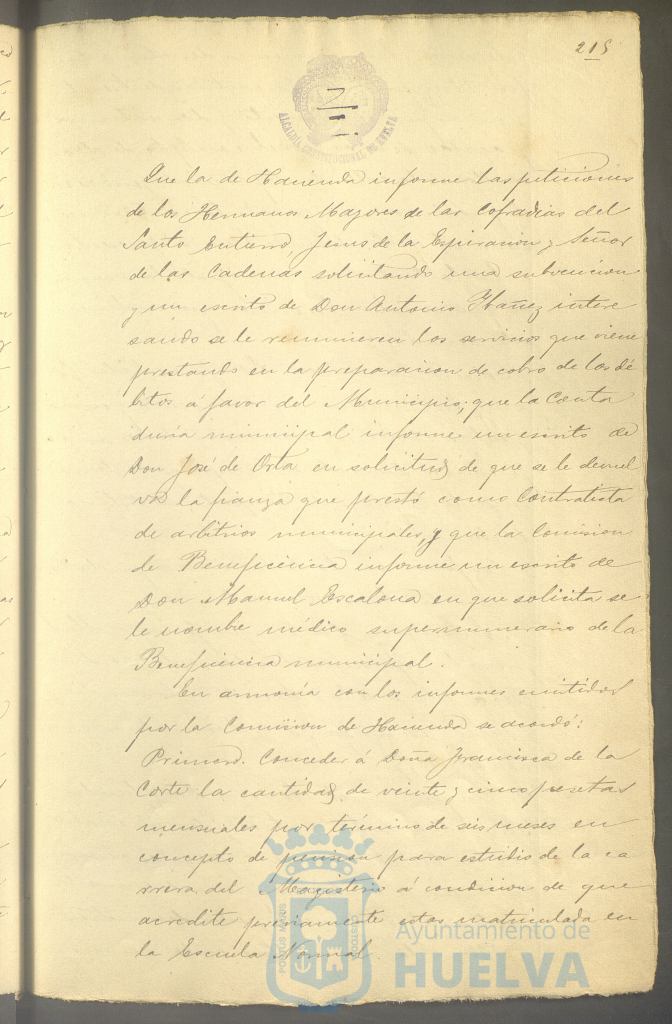 215
ALCALDIA CONSTITUCIONAL DE HUELVA
Que la de Hacienda informe las peticiones
de los Hermanos Mayores de las Cofradias del
Santo Entierro, Jesus de la Espiracion y Señor
de las Cadenas solicitando una subvencion
y un escrito de Don Antonio Ybañez intere
sando se le remuneren los servicios que viene
prestando en la preparacion de cobro de los dé
bitos á favor del Municipio; que la Conta
duria municipal informe un escrito de
Don José de Orta en solicitud de que se le devuel
va la fianza que prestó como Contratista
de arbitrios municipales, y que la Comision
de Beneficencia informe un escrito de
Don Manuel Escalona en que solicita se
le nombre médico supernumerario de la
Beneficencia municipal.
En armonía con los informes emitidos
por la Comision de Hacienda se acordó:
Primero. Conceder á Doña Francisca de la
Corte la cantidad de veinte y cinco pesetas
mensuales por término de seis meses en
concepto de pension para estudios de la ca
rrera del Magisterio á condicion de que
acredite previamente estar matriculada en
la Escuela Normal.
PORTUS MARIS
CUSTODIA
Ayuntamiento de
HUELVA